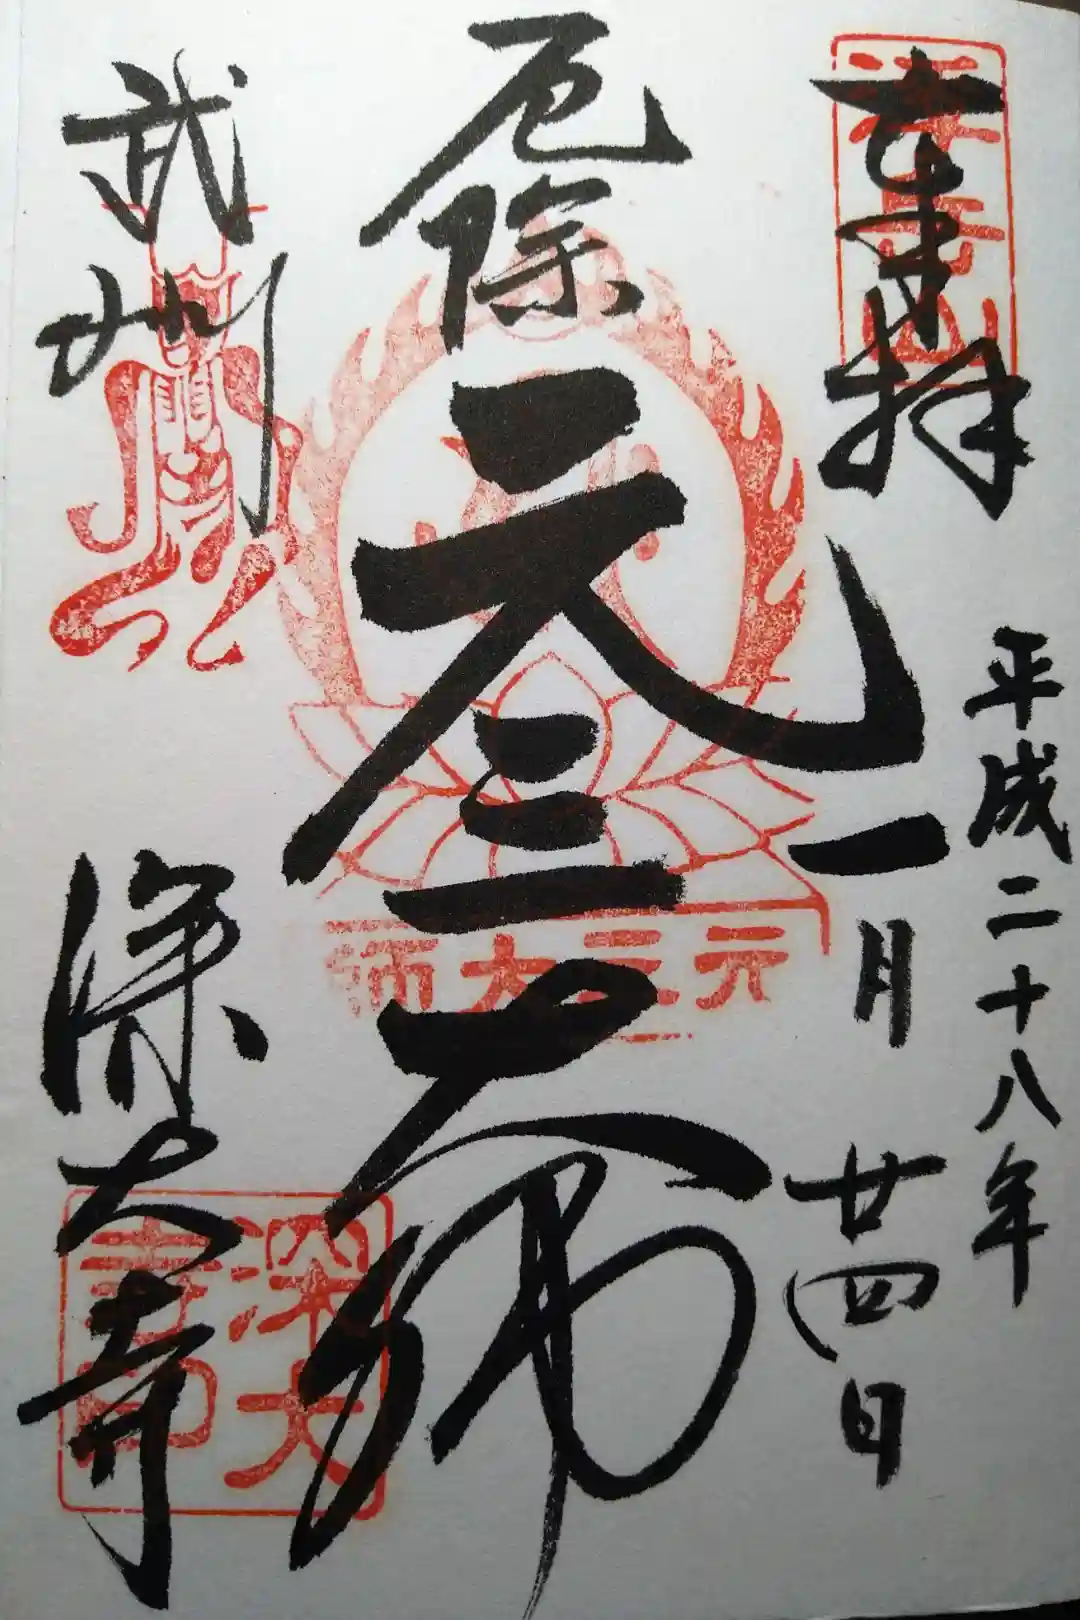 奉拝
平成二十八年
一月廿四日
厄除
元三大師
元三大師
武州
深大寺
深大
寺印